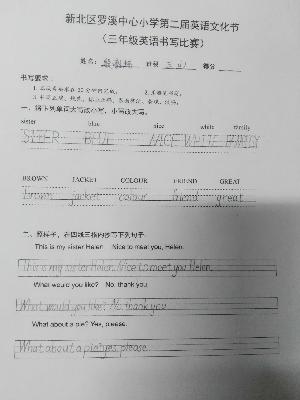 新北区罗溪中心小学第二届英语文化节
（三年级英语书写比赛）
姓名： 班级 得分
书写要求：
一、将下列单词大写改小写，小写改大写。
sister blue nice white family
SISTER BLUE NICE WHITE FAMILY
BROWN JACKET COLOUR FRIEND GREAT
brown jacket colour friend great
二、照样子，在四线三格内抄写下列句子。
This is my sister Helen. Nice to meet you, Helen.
This is my sister Helen. Nice to meet you, Helen.
What would you like? No, thank you.
What would you like? No, thank you.
What about a pie? Yes, please.
What about a pie? yes, please.